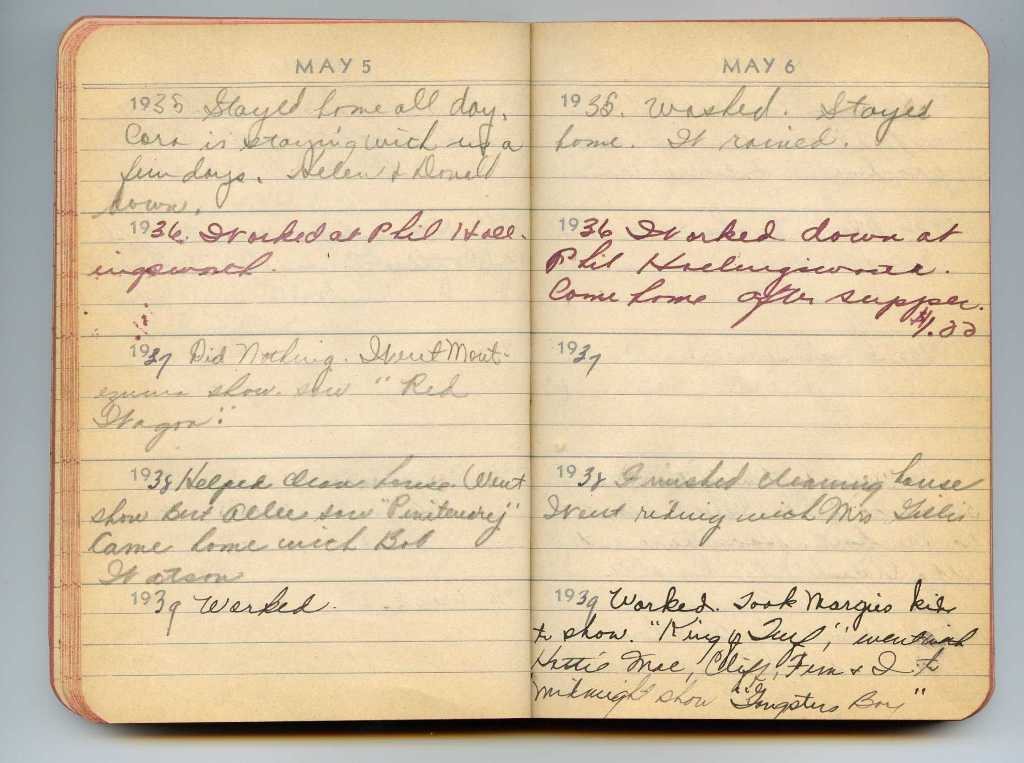 MAY 5
1935 Stayed home all day.
Cora is staying with us a
few days. Helen & Donell
down.
1936. Worked at Phil Holl-
ingsworth.
1937 Did Nothing. Went Mont-
ezuma show. saw "Red
Wagon."
1938 Helped clean house. Went
show Bert Allee saw "Penitenerej"
Came home with Bob
Watson
1939 Worked.
MAY 6
1935. Washed. Stayed
home. It rained.
1936 Worked down at
Phil Hollingsworth.
Come home after supper.
$1.00
1937
1938 Finished cleaning house
Went riding with Mrs Gillis
1939 Worked. Took Margies kids
to show. "King of Turf", went with
Hattie Mae, Cliff, Fern & I to
midnight show "Gangsters Boy"